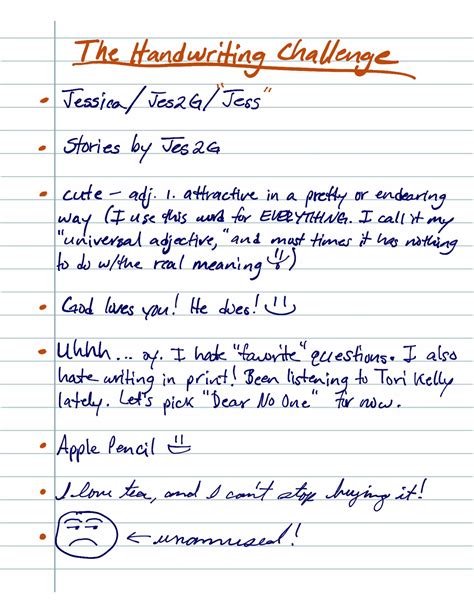 The Handwriting Challenge
• Jessica/Jes2G/"Jess"
• Stories by Jes2G
• cute – adj. 1. attractive in a pretty or endearing
way (I use this word for EVERYTHING. I call it my
"universal adjective," and most times it has nothing
to do w/the real meaning)
• God loves you! He does!
• Uhhh... oy. I hate "favorite" questions. I also
hate writing in print! Been listening to Tori Kelly
lately. Let's pick "Dear No One" for now.
• Apple Pencil
• I love tea, and I can't stop buying it!
• ← unamused!